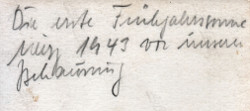 Die erste Frühjahrssonne
März 1943 vor unserer
Behausung